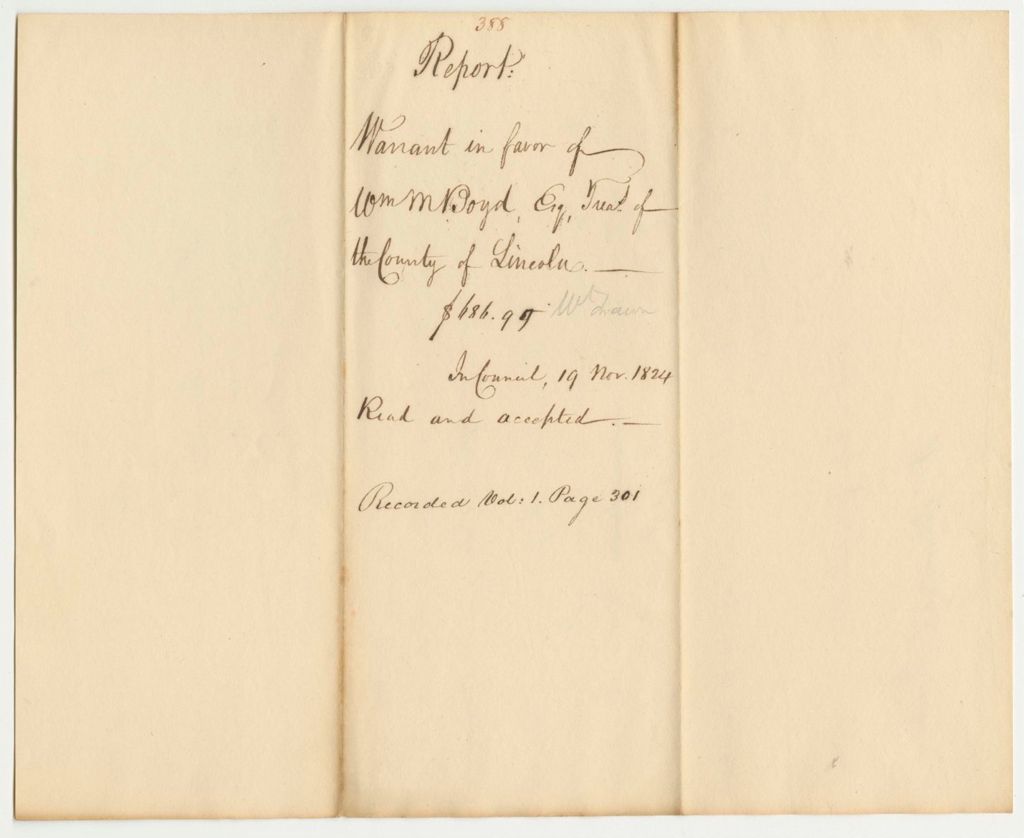 388
Report:
Warrant in favor of
Wm M Boyd, Esq, Treas. of
the County of Lincoln. —
$686.97 Wt Drawn
In Council, 19 Nov. 1824
Read and accepted. —
Recorded Vol: 1. Page 301